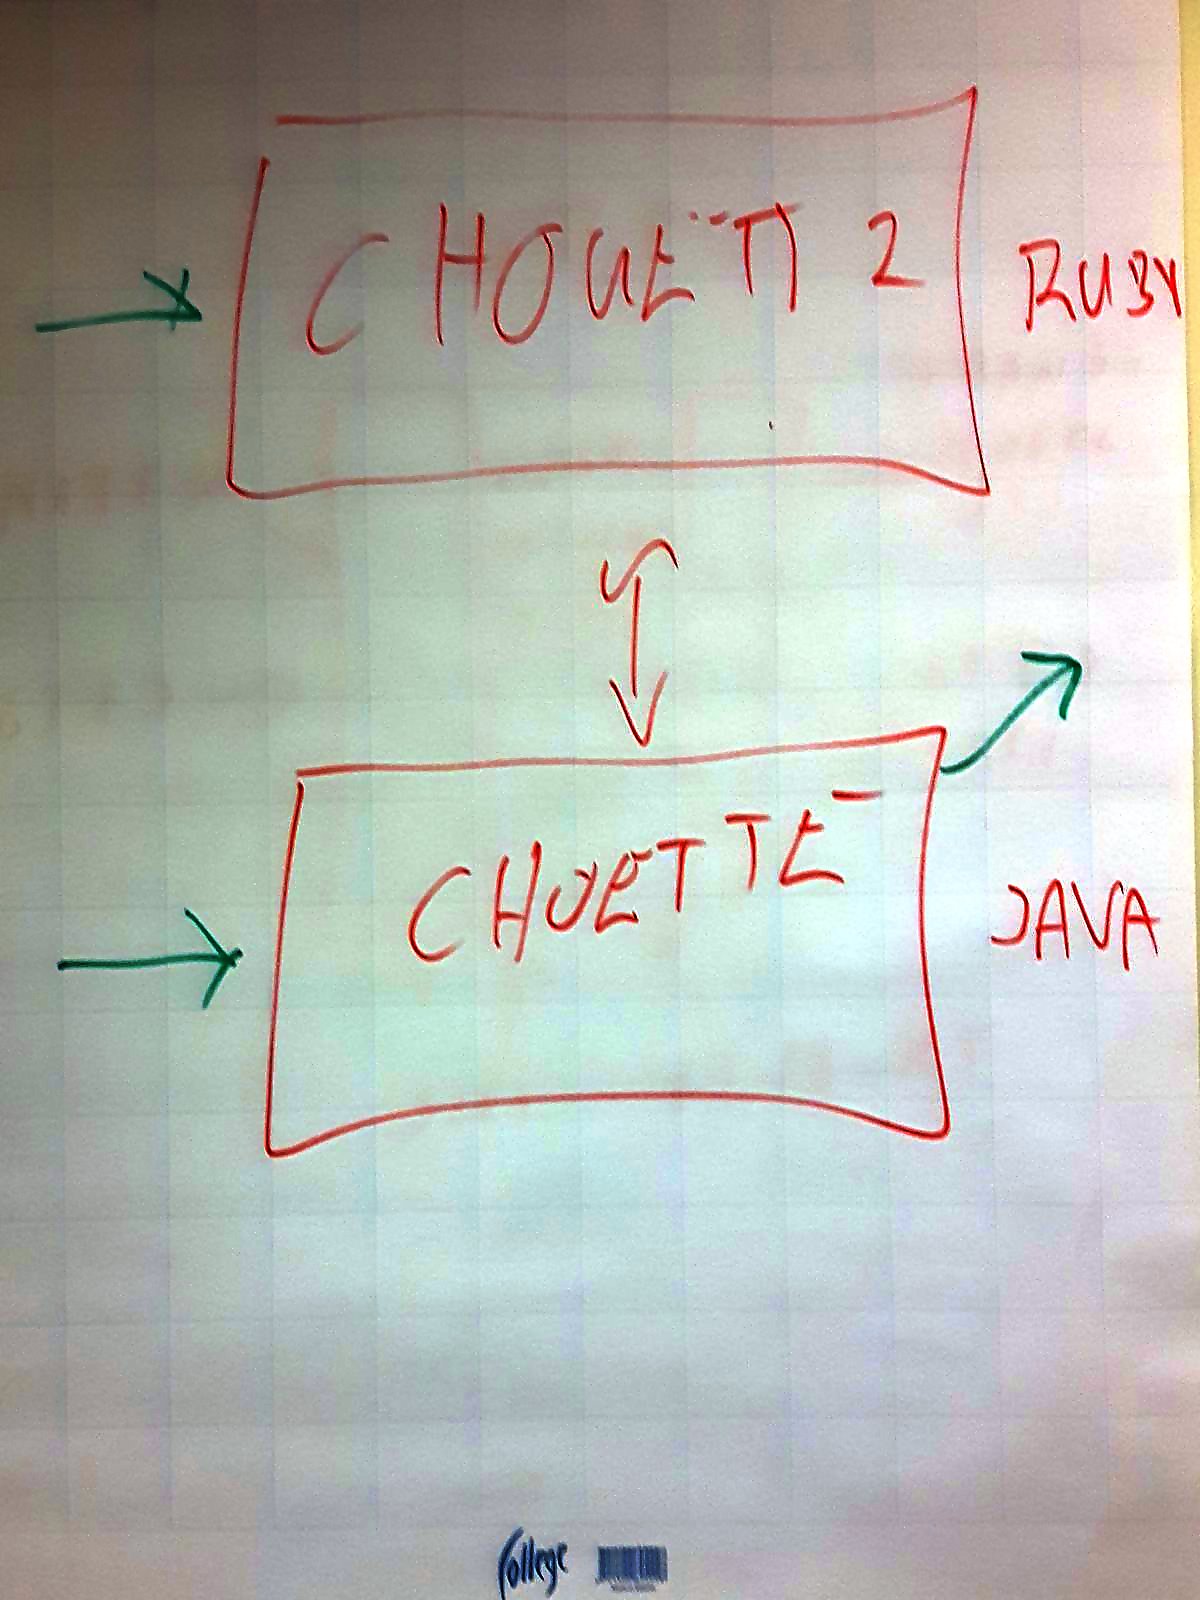 CHOUETT 2
RUBY
CHOETTE
JAVA
College